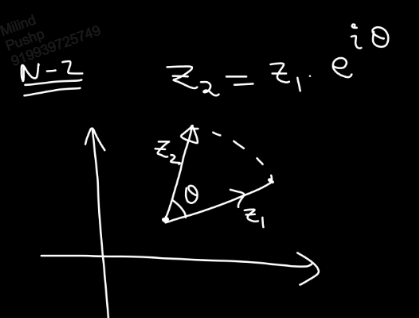 Milind
Pushp
919939725749
N-2
z₂ = z₁. e^{iθ}
z₂
θ
z₁